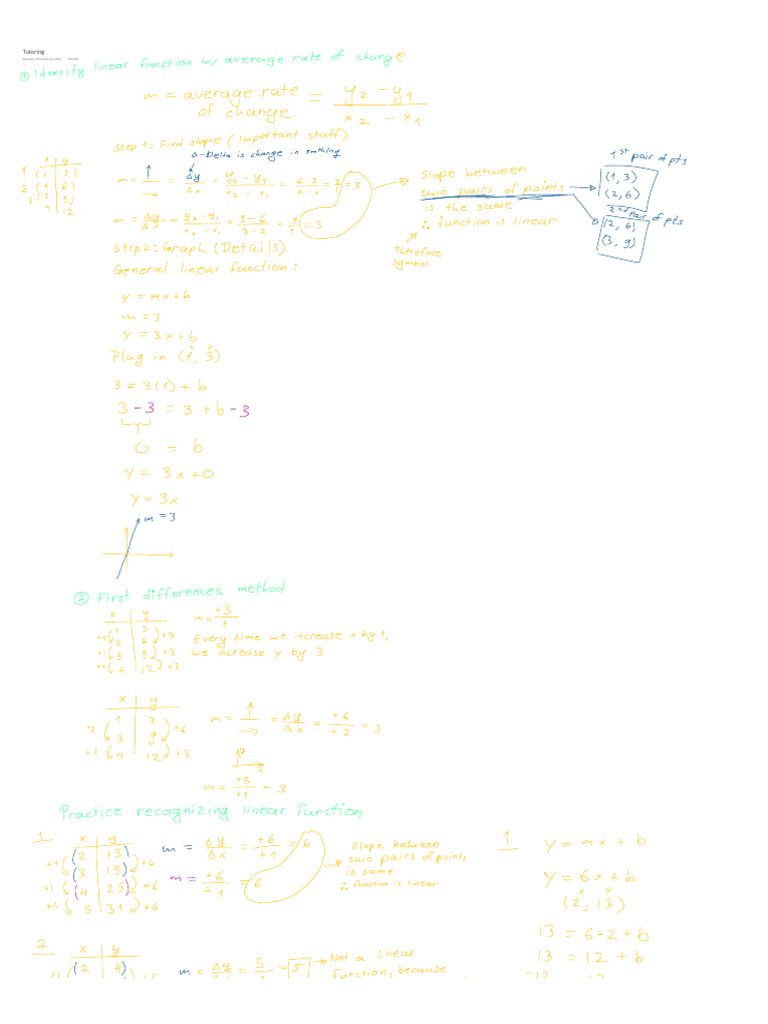 Tutoring
① Identify linear function w/ average rate of change
m = average rate of change = y₂ - y₁ / x₂ - x₁
Step 1: Find slope (Important stuff)
Δ-Delta is change in smthing
x | y
1 | 3
2 | 6
3 | 9
4 | 12
m = ↑/→ = Δy/Δx = y₂-y₁/x₂-x₁ = 6-3/2-1 = = 3
m = Δy/Δx = y₂-y₁/x₂-x₁ = 9-6/3-2 = = 3
Slope between
two pairs of points
is the same
∴ function is linear
Therefore
symbol
1st pair of pts
(1, 3)
(2, 6)
2nd pair of pts
(2, 6)
(3, 9)
Step 2: Graph (Details)
General linear function:
y = mx + b
m = 3
y = 3x + b
Plug in (1, 3)
3 = 3(1) + b
3 - 3 = 3 + b - 3
0 = b
y = 3x + 0
y = 3x
m = 3
② First differences method
x | y
+1 1 | 3 +3
2 | 6
+1 3 | 9 +3
+1 4 | 12 +3
m = +3/1
Every time we increase x by 1,
we increase y by 3
x | y
1 | 3
+2 3 | 9 +6
+1 4 | 12 +3
m = ↑/→ = Δy/Δx = +6/+2 = 3
m = +3/+1 = 3
Practice recognizing linear function
1
x | y
(2 | 13)
+1 (3 | 19) +6
+1 (4 | 25) +6
+1 5 | 31 +6
m = Δy/Δx = +6/+1 = 6
m = +6/+1 = 6
Slope between
two pairs of points
is same
∴ function is linear
1
y = mx + b
y = 6x + b
x y
(2, 13)
13 = 6·2 + b
13 = 12 + b
-12
2
x | y
(2 | 4)
m = Δy = 5 = 5
Not a linear
function, because